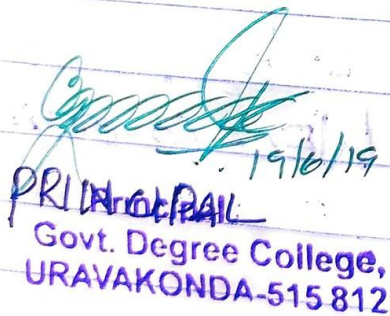 19/6/19
PRINCIPAL
Govt. Degree College,
URAVAKONDA-515 812